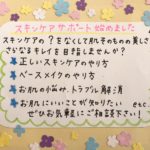 スキンケアサポート始めました
スキンケアの?をなくして肌そのものの美しさ
さらなるキレイを目指しませんか?
★正しいスキンケアのやり方
★ベースメイクのやり方
★お肌の悩み、トラブル解消
★お肌にいいことが知りたい esc.
ぜひお気軽にご相談下さい!